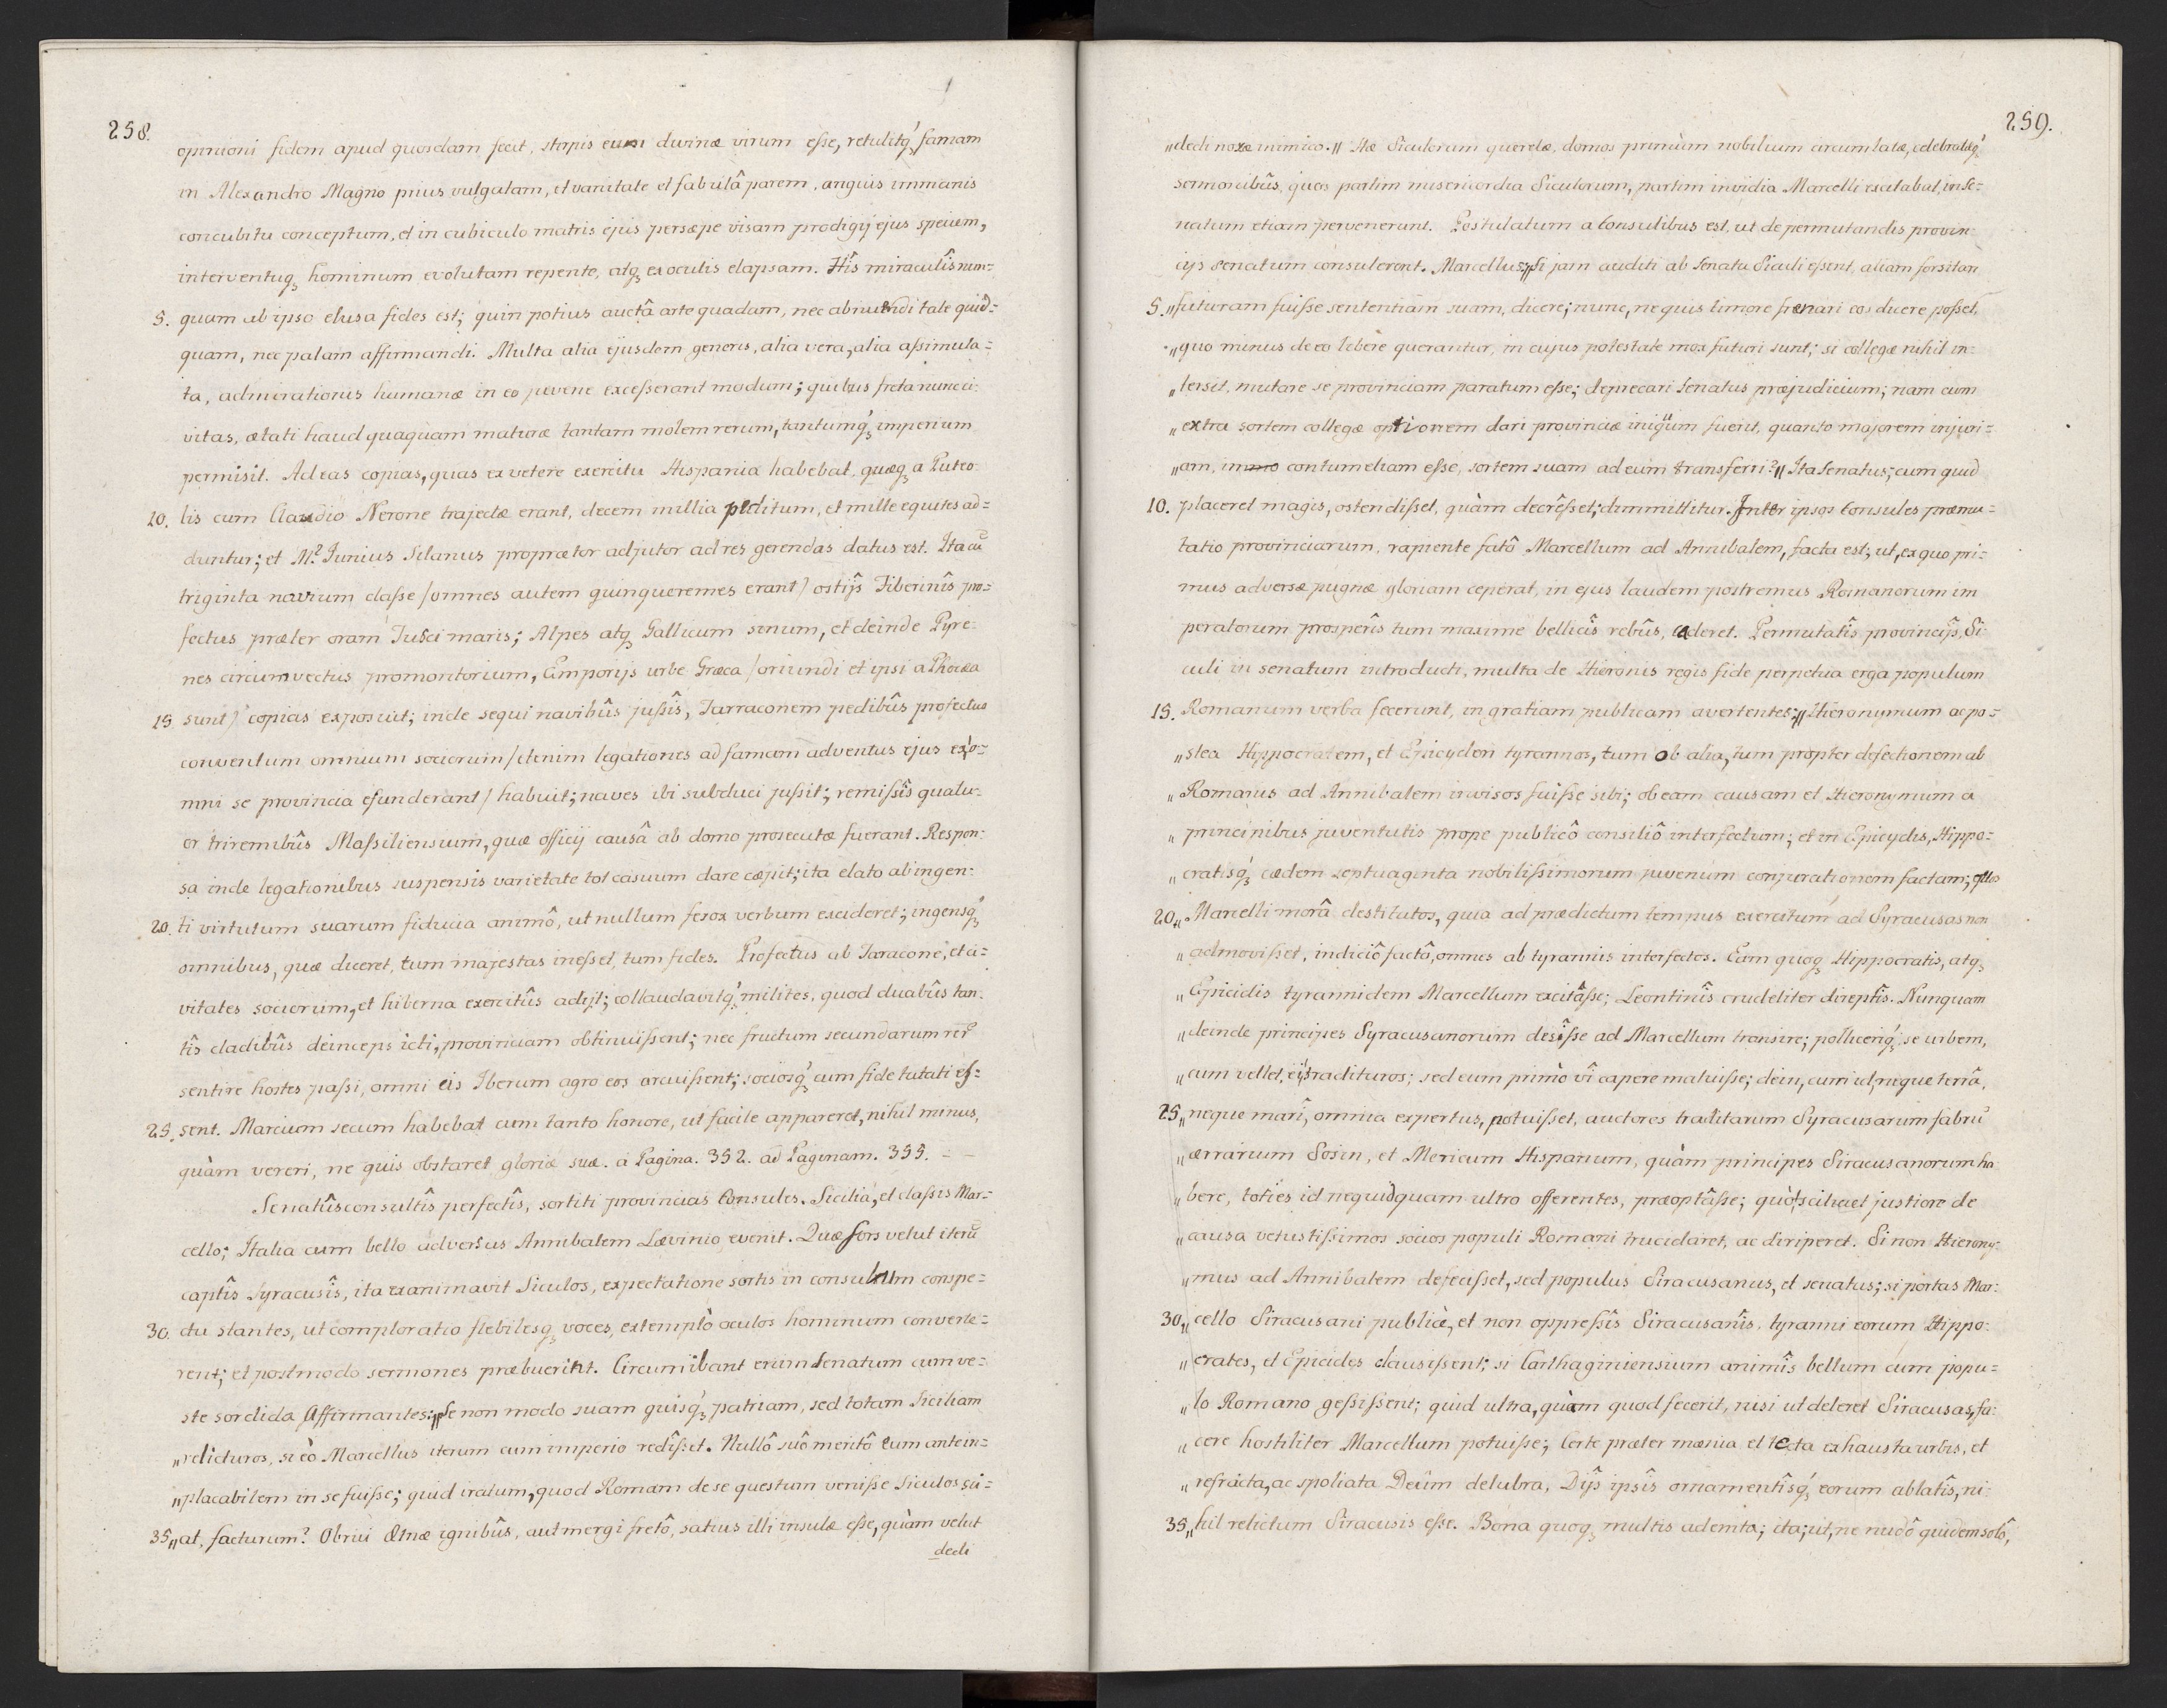 258.
opinioni fidem apud quosdam fecit, stirpis eum divinæ virum eſse, retulitq́ꝫ famam
in Alexandro Magno prius vulgatam, et vanitate et fabulâ parem, anguis immanis
concubitu conceptum, et in cubiculo matris ejus persæpe visam prodigij ejus speciem,
interventuqꝫ hominum evolutam repente, atqꝫ ex oculis elapsam. Hîs miraculîs nun=
5. quam ab ipso elusa fides est; quin potius auctâ arte quadam, nec abnuendi tale quid=
quam, nec palam affirmandi. Multa alia ejusdem generis, alia vera, alia aſsimula=
ta, admirationis humanæ in eo juvene exceſserant modum; quibus freta nunc ci=
vitas, ætati haud quaquam maturæ tantam molem rerum, tantumq́ꝫ imperium
permisit. Ad eas copias, quas ex vetere exercitu Hispania habebat, quæqꝫ a Puteo=
10. lis cum Claudio Nerone trajectæ erant, decem millia peditum, et mille equites ad=
duntur; et M? Junius Silanus proprætor adjutor ad res gerendas datus est. Ita cū
triginta navium claſse /omnes autem quinqueremes erant/ ostijs Tiberinîs pro=
fectus præter oram Tusci maris; Alpes atqꝫ Gallicum sinum, et deinde Pyre=
nes circumvectus promontorium, Emporijs urbe Græca /oriundi et ipsi a Phocæa
15 sunt/ copias exposuit; inde sequi navibûs juſsîs, Tarraconem pedibûs profectus
conventum omnium sociorum /etenim legationes ad famam adventus ejus ex o=
mni se provincia efunderant/ habuit; naves ibi subduci juſsit; remiſsîs quatu=
or triremibûs Maſsiliensium, quæ officij causâ ab domo prosecutæ fuerant. Respon=
sa inde legationibus suspensis varietate tot casuum dare cæpit; ita elato ab ingen=
20. ti virtutum suarum fiducia animô, ut nullum ferox verbum excideret; ingensq́ꝫ
omnibus, quæ diceret, tum majestas ineſset, tum fides. Profectus ab Taracone, et ci=
vitates sociorum, et hiberna exercitûs adijt; collaudavitq́ꝫ milites, quod duabûs tan=
tîs cladibûs deinceps icti, provinciam obtinuiſsent; nec fructum secundarum rerū
sentire hostes paſsi, omni cis Iberum agro eos arcuiſsent; sociosq́ꝫ cum fide tutati eſ=
25. sent. Marcium secum habebat cum tanto honore, ut facile appareret, nihil minus,
quàm vereri, ne quis obstaret gloriæ suæ. a Pagina. 352. ad Paginam. 355. - -
Senatûsconsultîs perfectîs, sortiti provincias Consules. Sicilia, et claſsis Mar=
cello; Italia cum bello adversus Annibalem Lævinio evenit. Quæ sors velut iterū
captîs Syracusîs, ita exanimavit Siculos, expectatione sortis in consulum conspe=
30. ctu stantes, ut comploratio flebilesqꝫ voces, extemplò oculos hominum converte=
rent; et postmodo sermones præbuerint. Circumibant enim senatum cum ve=
ste sordida affirmantes: „Se non modo suam quisq́ꝫ patriam, sed totam Siciliam
„relicturos, si eò Marcellus iterum cum imperio redîſset. Nullô suô meritô eum ante in=
„placabilem in se fuiſse; quid iratum, quod Romam de se questum veniſse Siculos sci=
35 „at, facturum? Obrui Ætnæ ignibûs, aut mergi fretô, satius illi insulæ eſse, quàm velut
dedi
259.
„dedi noxæ inimico.„ Hæ Siculorum querelæ, domos primùm nobilium circumlatæ, celebratæq́ꝫ
sermonibûs, quos partim misericordia Siculorum, partim invidia Marcelli excitabat, in se=
natum etiam pervenerunt. Postulatum a Consulibus est, ut de permutandis provin=
cijs senatum consulerent. Marcellus: „Si jam auditi ab senatu Siculi eſsent, aliam forsitan
5. „futuram fuiſse sententiam suam, dicere; nunc, ne quis timore frenari eos dicere poſset,
„quo minus de eo liberè querantur, in cujus potestate mox futuri sunt; si collegæ nihil in=
„tersit, mutare se provinciam paratum eſse; deprecari Senatus præjudicium; nam cum
„extra sortem collegæ optionem dari provinciæ iniqũum fuerit, quanto majorem injuri=
„am, immo contumeliam eſse, sortem suam ad eum transferri?„ Ita Senatus; cum quid
10. placeret magis, ostendiſset, quàm decrêſset; dimmittitur. Inter ipsos Consules præmu=
tatio provinciarum, rapiente fatô Marcellum ad Annibalem, facta est; ut, ex quo pri=
mus adversæ pugnæ gloriam ceperat, in ejus laudem postremus Romanorum im
peratorum prosperîs tum maxime bellicîs rebûs, caderet. Permutatîs provincijs, Si
culi in senatum introducti, multa de Hieronis regis fide perpetua erga populum
15. Romanum verba fecerunt, in gratiam publicam avertentes; „Hieronymum ac po=
„stea Hippocratem, et Epicyden tyrannos, tum ob alia, tum propter defectionem ab
„Romanis ad Annibalem invisos fuiſse sibi; ob eam causam et Hieronymum a
„principibus juventutis prope publicô consiliô interfectum; et in Epicydis, Hippo=
„cratisq́ꝫ cædem septuaginta nobiliſsimorum juvenum conjurationem factam; quos
20 „Marcelli morâ destitutos, quia ad prædictum tempus exercitum ad Syracusas non
„admoviſset, indiciô factô, omnes ab tyrannis interfectos. Eam quoqꝫ Hippocratis, atqꝫ
„Epicidis tyrannidem Marcellum excitâſse; Leontinîs crudeliter direptîs. Nunquam
„deinde principes Syracusanorum desîſse ad Marcellum transire; pollicerìq́ꝫ se urbem,
„cum vellet, ei tradituros; sed eum primò vî capere maluiſse; dein, cum id, neque terrâ,
25 „neque marî, omnia expertus, potuiſset, auctores traditarum Syracusarum fabrū
„ærrarium Sosin, et Mericum Hispanum, quàm principes Siracusanorum ha
„bere, toties id nequidquam ultro offerentes, præoptâſse; quò scilicet justiore de
„causa vetustiſsimos socios populi Romani trucidaret, ac diriperet. Si non Hierony=
„mus ad Annibalem defeciſset, sed populus Siracusanus, et senatus; si portas Mar=
30 „cello Siracusani publicè, et non oppreſsîs Siracusanîs, tyranni eorum Hippo=
„crates, et Epicides clausiſsent; si Carthaginiensium animîs bellum cum popu=
„lo Romano geſsiſsent; quid ultra, quàm quod fecerit, nisi ut deleret Siracusas, fa=
„cere hostiliter Marcellum potuiſse; Certe præter mænia et tecta exhausta urbis, et
„refracta, ac spoliata Deûm delubra, Dijs ipsîs ornamentîsq́ꝫ eorum ablatîs, ni=
35 „hil relictum Siracusis eſse. Bona quoqꝫ multis ademta; ita; ut, ne nudô quidem solô,